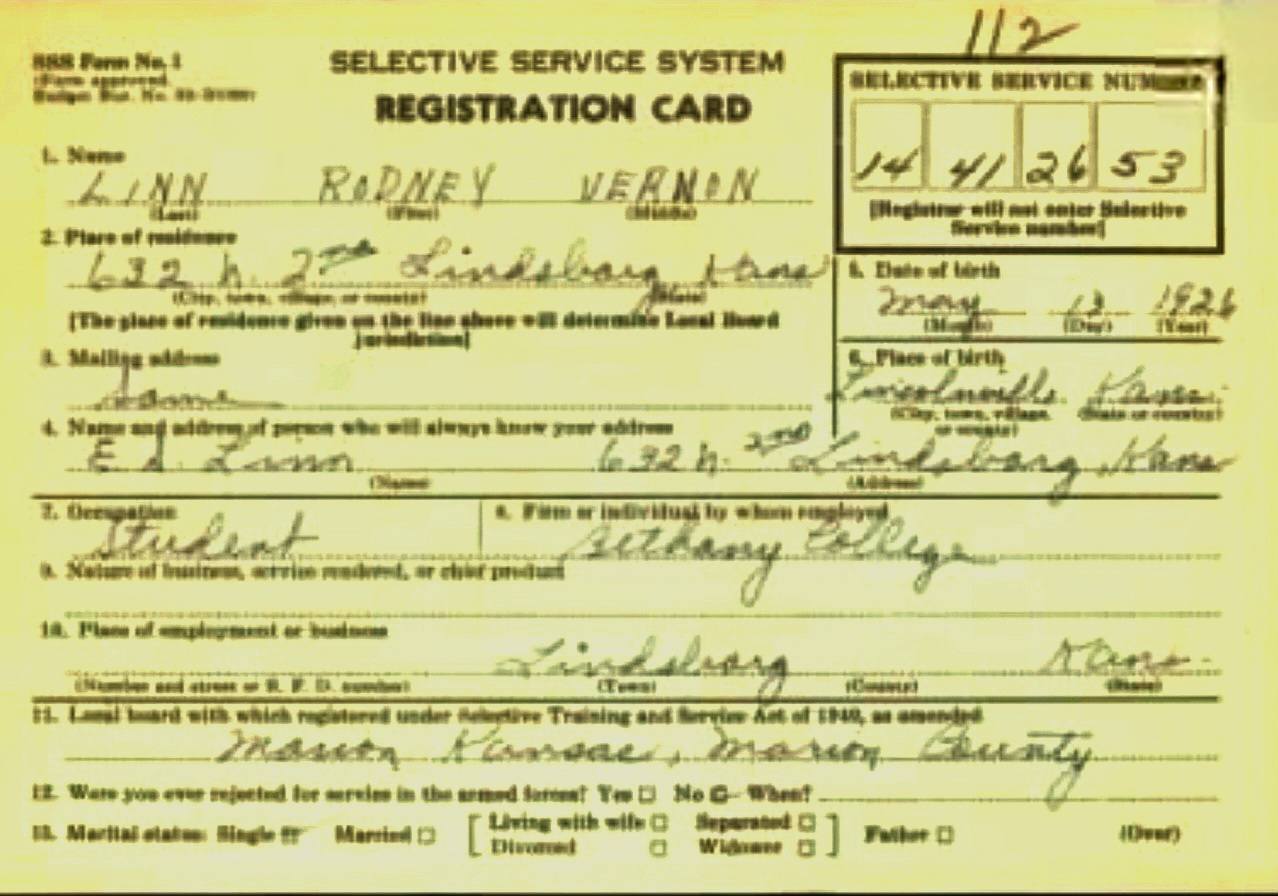 112
SSS Form No. 1
(Form approved.
SELECTIVE SERVICE SYSTEM
REGISTRATION CARD
SELECTIVE SERVICE NUMBER
14 41 26 53
[Registrar will not enter Selective
Service number]
1. Name
LINN RODNEY VERNON
(Last) (First) (Middle)
2. Place of residence
632 N. 2nd Lindsborg Kans
(City, town, village, or county) (State)
[The place of residence given on the line above will determine Local Board
jurisdiction]
5. Date of birth
May 13 1926
(Month) (Day) (Year)
3. Mailing address
Same
6. Place of birth
Lincolnville Kans.
(City, town, village, (State or country)
or county)
4. Name and address of person who will always know your address
E. L. Linn 632 N. 2nd Lindsborg, Kans
(Name) (Address)
7. Occupation
Student
8. Firm or individual by whom employed
Bethany College
9. Nature of business, service rendered, or chief product
10. Place of employment or business
Lindsborg Kans.
(Number and street or R. F. D. number) (Town) (County) (State)
11. Local board with which registered under Selective Training and Service Act of 1940, as amended
Marion Kansas, Marion County
12. Were you ever rejected for service in the armed forces? Yes □ No □ When?
13. Marital status: Single □ Married □ [ Living with wife □ Separated □ ] Father □ (Over)
Divorced □ Widower □